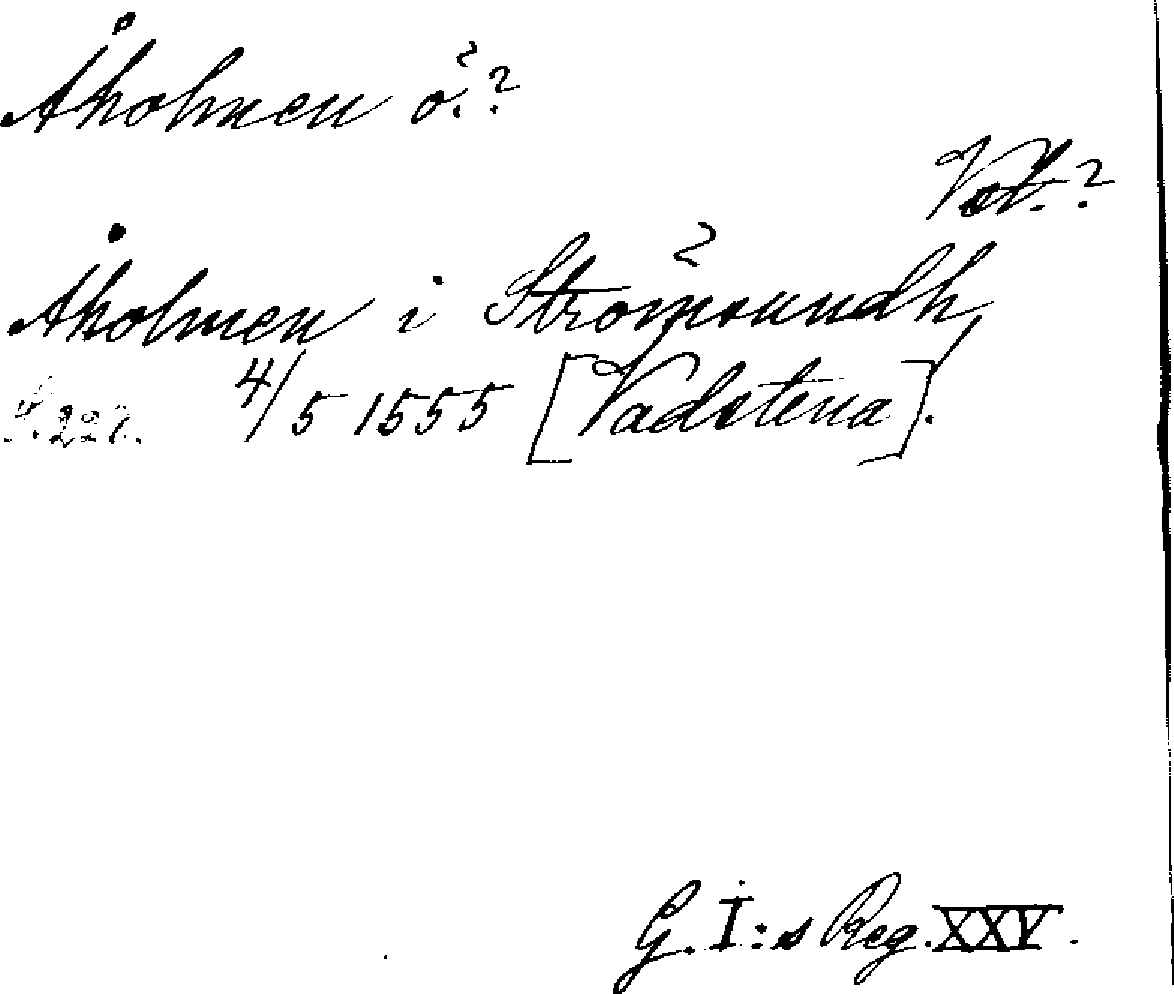 Åholmen ö.?
Vst.?
Åholmen i Strömsundh,
S. 227. 4/5 1555 [Vadstena].
G. I:s Reg. XXV.